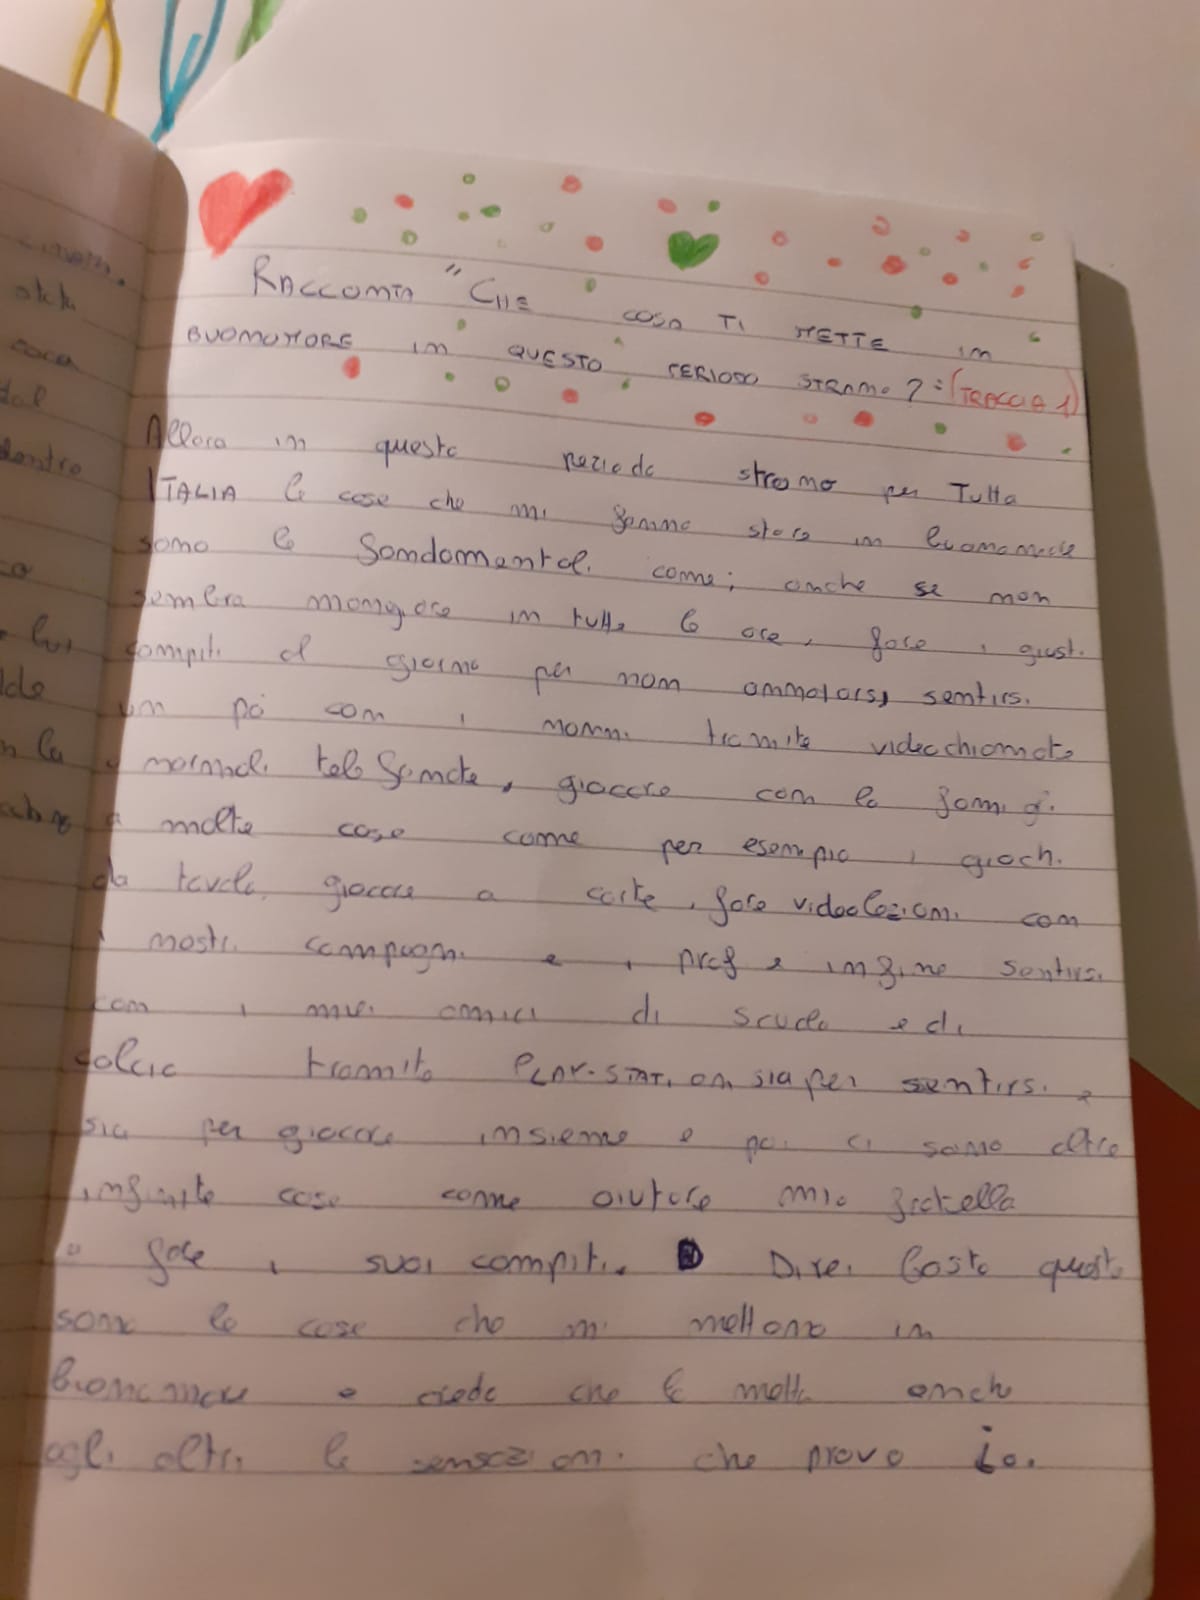 RACCONTA "CHE COSA TI METTE IN
BUONUMORE IN QUESTO PERIODO STRANO?: (TRACCIA 1)
Allora in questo periodo strano per Tutta
ITALIA le cose che mi fanno stare in
sono le fondamentali come; anche se non
sembra mangiare in tutte le ore, fare i giusti
compiti al giorno per non ammalarsi, sentirsi
un pò con i nonni tramite videochiamate
normali telefonate, giocare con la famigi
a molte cose come per esempio i giochi
da tavola, giocare a carte, fare videolezioni con
i nostri compagni e i prof e infine sentirsi
con i miei amici di scuola e di
calcio tramite PLAY-STATion sia per sentirsi e
sia per giocare insieme e poi ci sono altre
infinite cose come aiutare mio fratello
a fare i suoi compiti. Direi basta queste
sono le cose che mi mettono in
e credo che le metta anche
agli altri le sensazioni che provo io.
cosa
dal
dentro